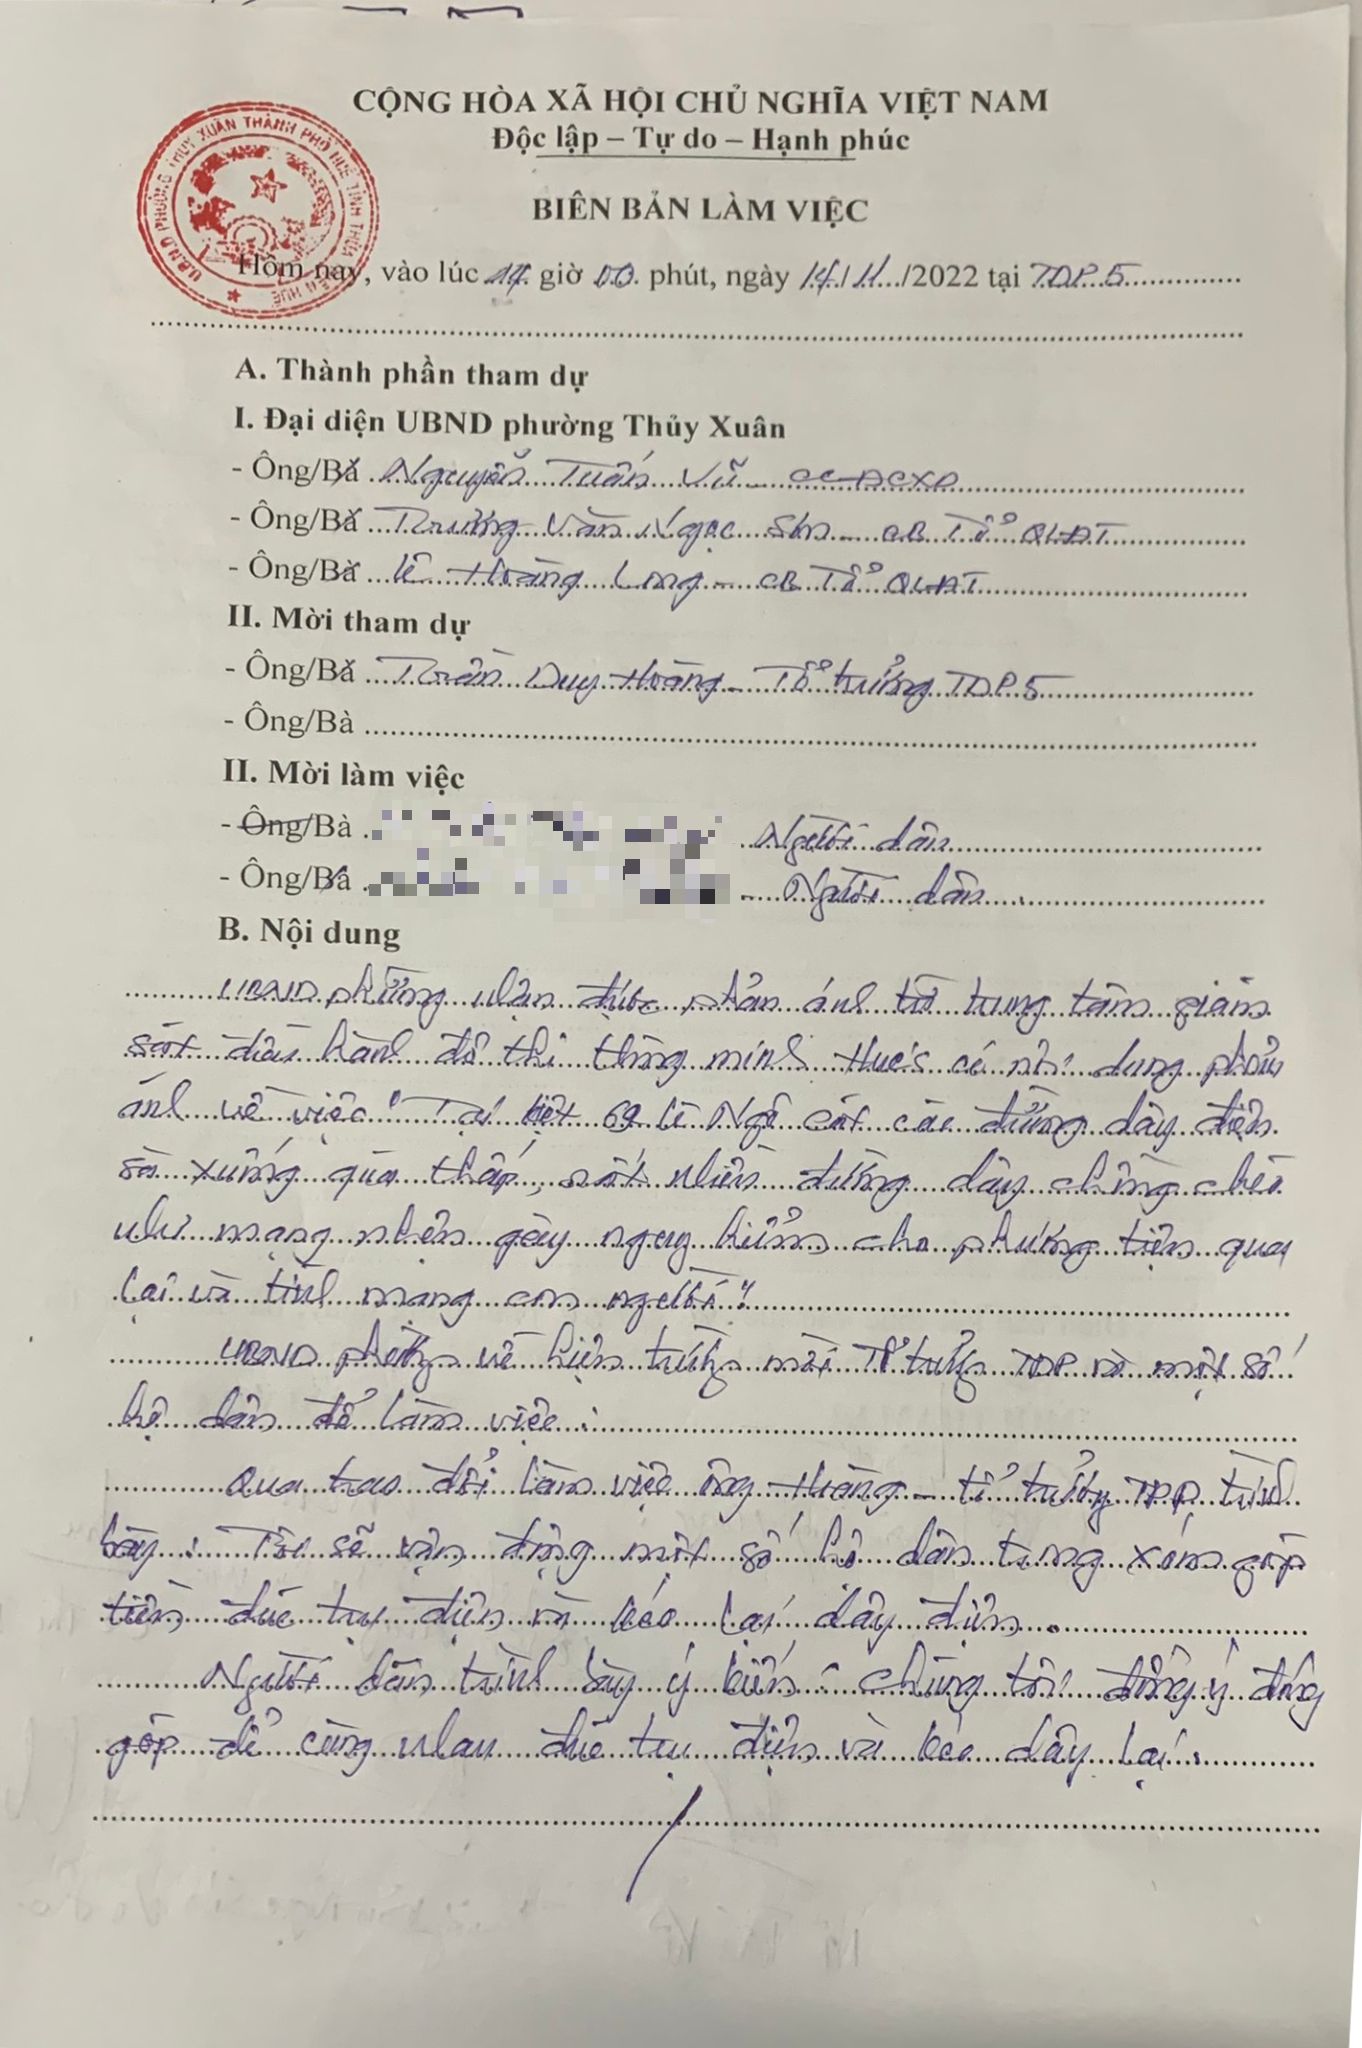 CỘNG HÒA XÃ HỘI CHỦ NGHĨA VIỆT NAM
Độc lập – Tự do – Hạnh phúc
U.B.N.D PHƯỜNG THỦY XUÂN THÀNH PHỐ HUẾ TỈNH THỪA THIÊN HUẾ
BIÊN BẢN LÀM VIỆC
Hôm nay, vào lúc giờ 00 phút, ngày 14/11/2022 tại TDP 5
A. Thành phần tham dự
I. Đại diện UBND phường Thủy Xuân
- Ông/Bà Nguyễn Tuấn Vũ - CC ĐCXD
- Ông/Bà Trương Văn Ngọc Sơn - CB Tổ QLĐT
- Ông/Bà Lê Hoàng Long - CB Tổ QLĐT
II. Mời tham dự
- Ông/Bà Trần Duy Hoàng - Tổ trưởng TDP 5
- Ông/Bà
II. Mời làm việc
- Ông/Bà Người dân
- Ông/Bà Người dân
B. Nội dung
UBND phường nhận được phản ánh từ trung tâm giám
sát điều hành đô thị thông minh Hues có nội dung phản
ánh về việc "Tại kiệt 69 Lê Ngô Cát các đường dây điện
sà xuống quá thấp, rất nhiều đường dây chồng chéo
như mạng nhện gây nguy hiểm cho phương tiện qua
lại và tính mạng con người".
UBND phường về hiện trường mời Tổ trưởng TDP và một số
hộ dân để làm việc:
Qua trao đổi làm việc ông Hoàng - tổ trưởng TDP trình
bày: Tôi sẽ vận động một số hộ dân trong xóm góp
tiền đúc trụ điện và kéo lại dây điện.
Người dân trình bày ý kiến: chúng tôi đồng ý đóng
góp để cùng nhau đúc trụ điện và kéo dây lại.